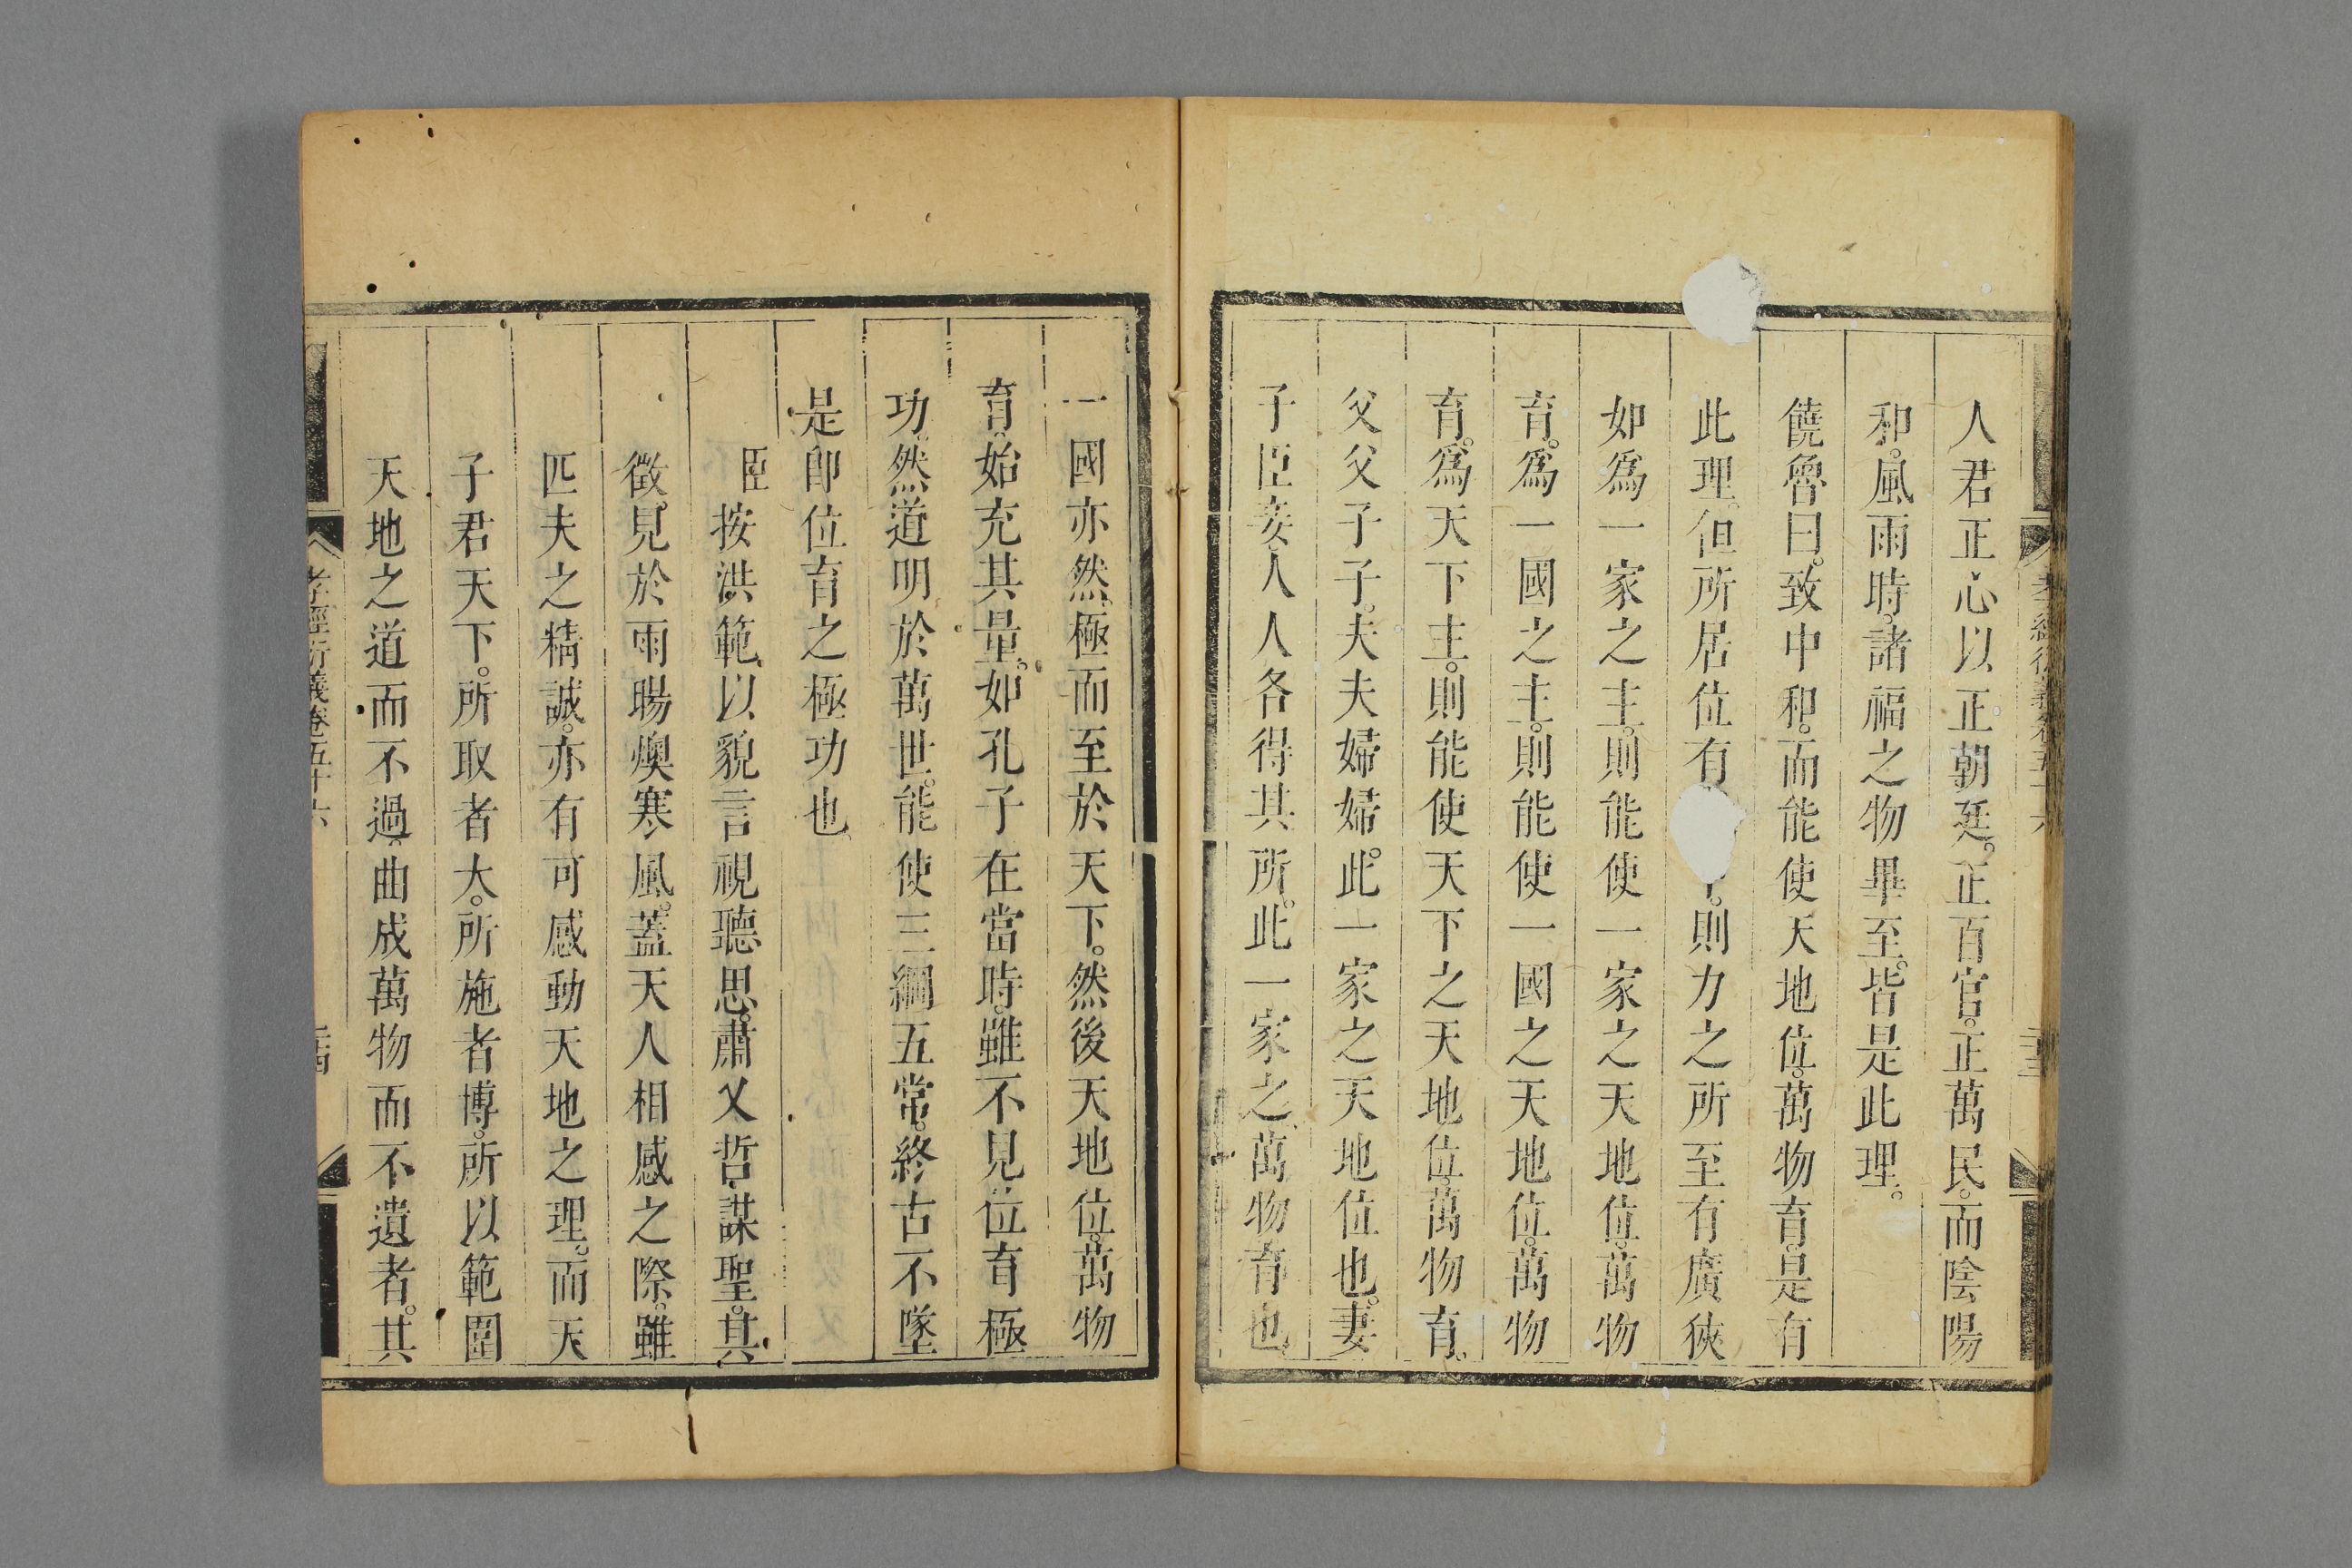 人君正心以正朝廷。正百官。正萬民。而陰陽
和。風雨時。諸福之物畢至。皆是此理。
饒魯曰。致中和。而能使天地位。萬物育。是有
此理。但所居位有則力之所至有廣狹
如爲一家之主。則能使一家之天地位。萬物
育。爲一國之主。則能使一國之天地位。萬物
育。爲天下主。則能使天下之天地位。萬物育。
父父子子。夫夫婦婦。此一家之天地位也。妻
子臣妾。人人各得其所。此一家之萬物育也。
一國亦然。極而至於天下。然後天地位。萬物
育。始充其量。如孔子在當時。雖不見位育極
功。然道明於萬世。能使三綱五常。終古不墜
是卽位育之極功也
臣按洪範。以貌言視聽思。肅乂哲謀聖。其
徵。見於雨暘燠寒風。蓋天人相感之際。雖
匹夫之精誠。亦有可感動天地之理。而天
子君天下。所取者大。所施者博。所以範圍
天地之道而不過。曲成萬物而不遺者。其
孝經衍義卷五十六